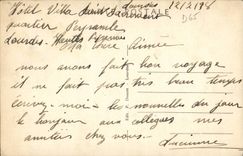 Hôtel Villa Saint-Laurent Lourdes 12/2/198
quartier Peyramale POSTALE D65
Lourdes. Hautes Pyrénées
Ma chère Aimée
nous avons fait bon voyage
il ne fait pas très beau temps
Écrivez-moi les nouvelles du jour
le bonjour aux collègues mes
amitiés chez vous
Lucienne